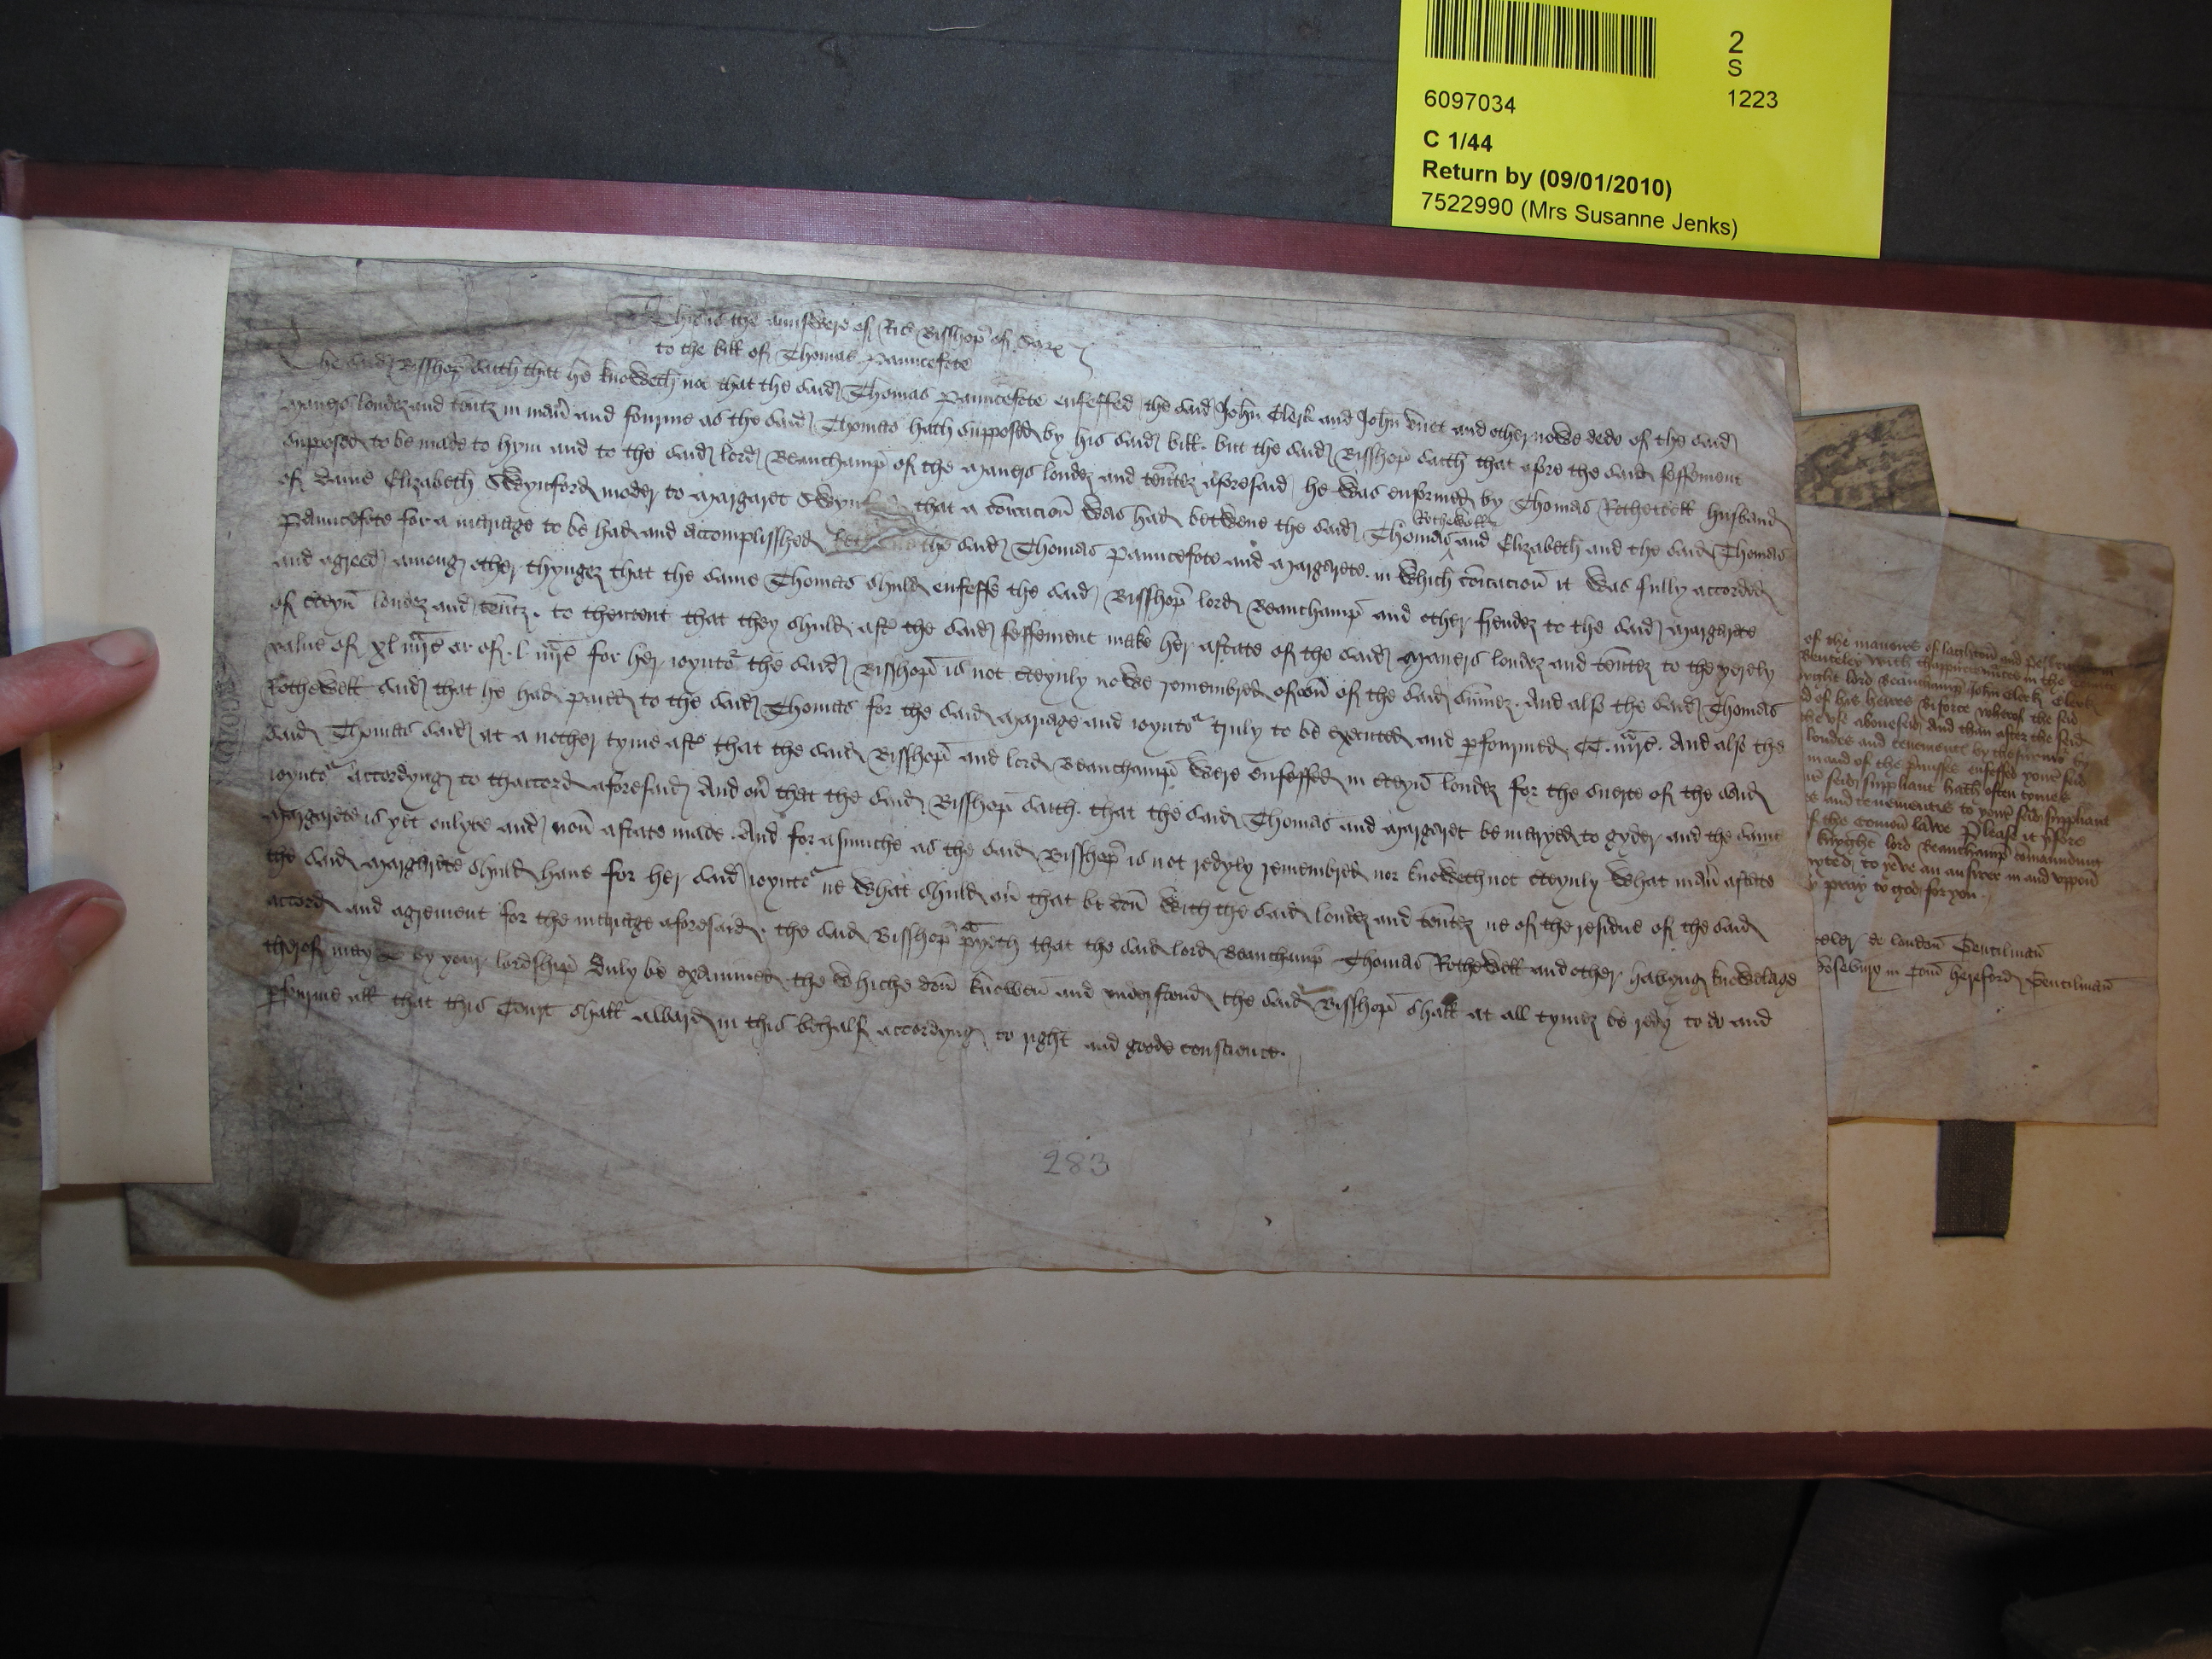 2
S
6097034
1223
C 1/44
Return by (09/01/2010)
7522990 (Mrs Susanne Jenks)
This is the aunswere of Ric Bisshop of Sar
to the bill of Thomas Pauncefote
The said Bisshop saith that he knoweth not that the said Thomas Pauncefote enfeffed the said John Clerk and John and other nowe dede of the said
maners londez and tentz in man and fourme as the said Thomas hath supposed by his said bill. but the said Bisshop saith that afore the said feffement
supposed to be made to hym and to the said lord Beauchamp of the maners londez and tentez aforesaid he was enformed by Thomas Rothewell husband
of dame Elizabeth Swynford moder to Margaret that a coicacion was had betwene the said Thomas Rothewell and Elizabeth and the said Thomas
Pauncefote for a mariage to be had and accomplisshed the said Thomas Pauncefote and Margarete. in which coicacion it was fully accorded
and agreed among other thyngez that the same Thomas shuld enfeffe the said Bisshop lord Beauchamp and other frendez to the said Margarete
of cteyn londez and tentz. to thentent that they shuld aft the said feffement make her astate of the said maners londez and tentez to the yerely
value of xl mrc or of .l. mrc for her joyntor the said Bisshop is not cteynly nowe remembred of on of the said sumez. And also the said Thomas
Rothewell said that he had paied to the said Thomas for the said mariage and joyntor truly to be executed and pfourmed CC. mrc. And also the
said Thomas said at a nother tyme aft that the said Bisshop and lord Beauchamp were enfeffed in cteyn londez for the suerte of the said
joyntor accordyng to thaccord aforesaid And ou that the said Bisshop saith. that the said Thomas and Margaret be maryed to gyder and the same
Margarete is yet onlyve and non astate made. And for asmuche as the said Bisshop is not redyly remembred nor knoweth not cteynly what man astate
the said Margarete shuld have for her said joyntor ne what shuld ou that be don with the said londez and tentez ne of the residue of the said
accord and agrement for the mariage aforesaid. the said Bisshop prayeth that the said lord Beauchamp Thomas Rothewell and other havyng knowelage
therof may by your lordship duly be examined. the whiche don knowen and understond the said Bisshop shall at all tymez be redy to do and
pfourme all that this Court shall award in this behalf accordyng to right and goode conscience.
283
of the maners of and
Benteley with thappurtenunces in the
knyght lord Beauchamp John Clerk Clerk
d of his heires Before wherof the seid
the use abovesaid And than after the seid
londes and tenements by thassent by
maund of the enfeffed your seid
seid suppliant hath often tymes
es and tenementis to your seid suppliant
of the comon lawe Please it
knyght lord Beauchamp comaundyng
to yeve an answer in and uppon
y pray to god for you
de london Gentilman
in Com hereford Gentilman